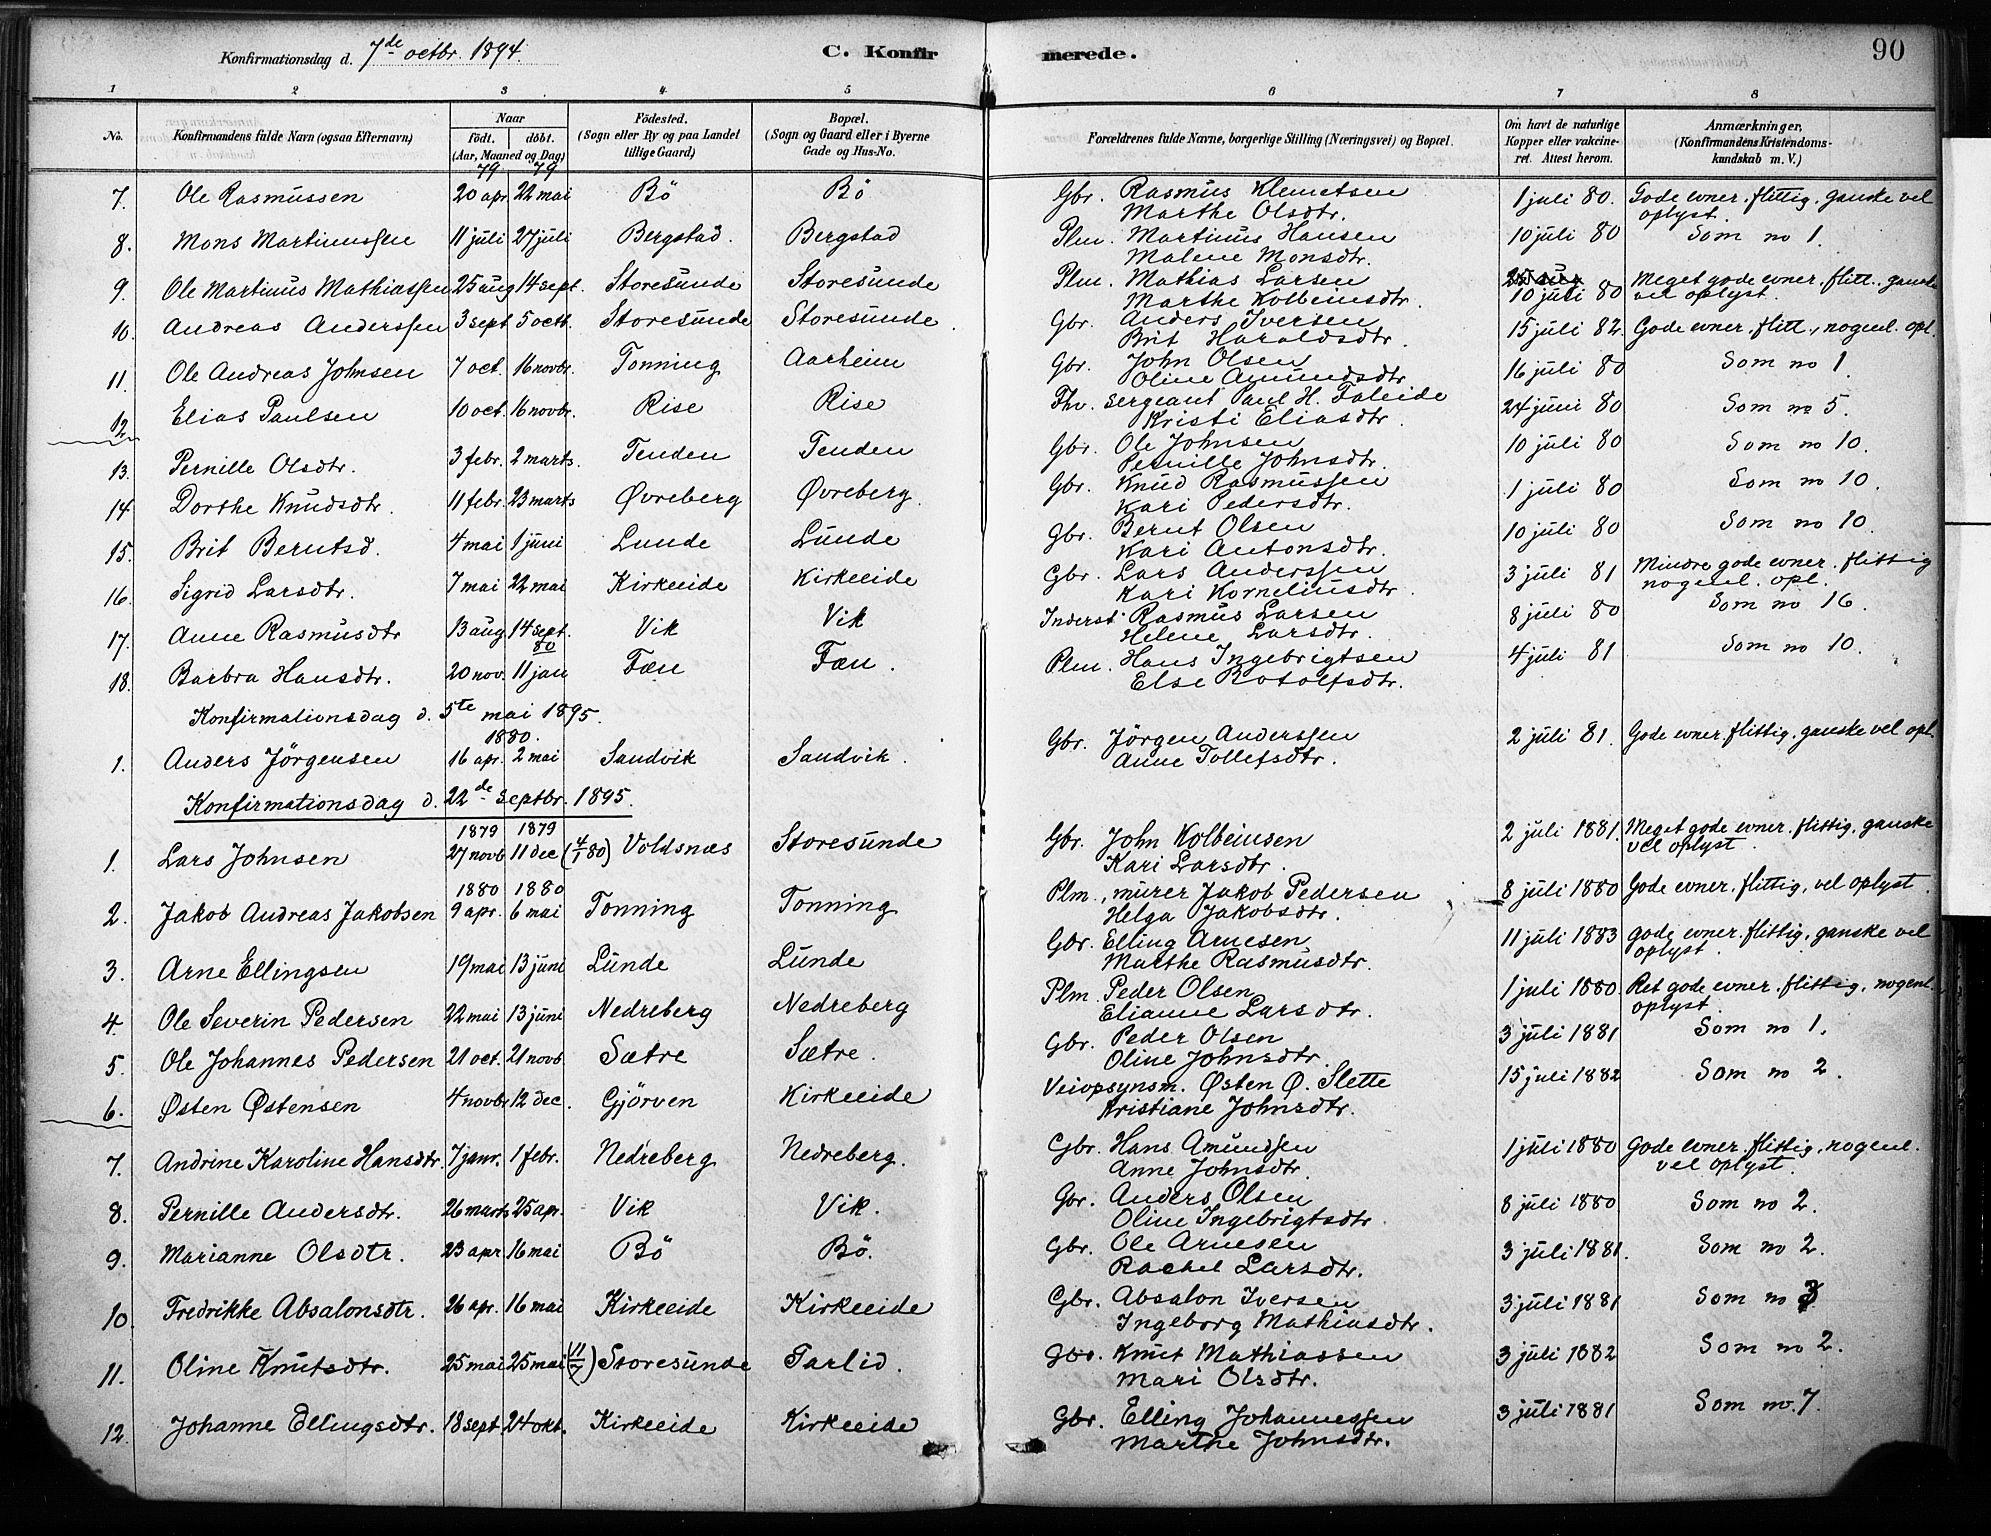 Konfirmationsdag d. 7de octbr. 1894.
C. Konfirmerede.
90
1 2 3 4 5 6 7 8
No. | Konfirmandens fulde Navn (ogsaa Efternavn) | Naar født. døbt. (Aar, Maaned og Dag) | Födested. (Sogn eller By og paa Landet tillige Gaard) | Bopæl. (Sogn og Gaard eller i Byerne Gade og Hus-No. | Forældrenes fulde Navne, borgerlige Stilling (Næringsvei) og Bopæl. | Om havt de naturlige Kopper eller vakcineret. Attest herom. | Anmærkninger, (Konfirmandens Kristendomskundskab m. V.)
79 79
7. Ole Rasmussen 20 apr. 22 mai Bö Bö Gbr. Rasmus Klemetsen 1 juli 80. Gode evner. flittig, ganske vel
Marthe Olsdtr. oplyst.
8. Mons Martinussen 11 juli 27 juli Bergstad. Bergstad Plm. Martinus Hansen 10 juli 80 Som no 1.
Malene Monsdtr.
9. Ole Martinus Mathiassen 25 aug 14 sept. Storesunde Storesunde Plm. Mathias Larsen 10 juli 80 Meget gode evner. flitt., ganske
Marthe Kolbeinsdtr. vel oplyst.
10. Andreas Anderssen 3 sept 5 octb. Storesunde Storesunde. Gbr. Anders Iversen 15 juli 82. Gode evner, flitt., nogenl. opl.
Brit Haraldsdtr.
11. Ole Andreas Johnsen 7 oct. 16 novbr. Tonning Aarheim Gbr. John Olsen 16 juli 80 Som no 1.
Oline Amundsdtr
12. Elias Paulsen 10 oct. 16 novbr. Rise Rise Fhv. sergeant Paul H. Faleide 24 juni 80 Som no 5.
Kristi Eliasdtr.
13. Pernille Olsdtr. 3 febr. 2 marts. Tenden Tenden Gbr. Ole Johnsen 10 juli 80 Som no 10.
Pernille Johnsdtr.
14. Dorthe Knudsdtr. 11 febr. 23 marts Øvreberg Øvreberg. Gbr. Knud Rasmussen 1 juli 80 Som no 10.
Kari Pedersdtr.
15. Brit Berntsd. 4 mai 1 juni Lunde Lunde Gbr. Bernt Olsen 10 juli 80 Som no 10.
Kari Antonsdtr.
16. Sigrid Larsdtr. 7 mai 22 mai Kirkeeide Kirkeeide Gbr. Lars Anderssen 3 juli 81 Mindre gode evner. flittig
Kari Korneliusdtr. nogenl. opl.
17. Anne Rasmusdtr 13 aug 14 sept. Vik Vik Inderst Rasmus Larsen 8 juli 80 Som no 16.
Helene Larsdtr.
80
18. Barbra Hansdtr. 20 nov. 11 jan Fæn Fæn. Plm. Hans Ingebrigtsen 4 juli 81 Som no 10.
Else Rotolfsdtr.
Konfirmationsdag d. 5te mai 1895.
1880.
1. Anders Jörgensen 16 apr. 2 mai Sandvik Sandvik. Gbr. Jörgen Anderssen 2 juli 81. Gode evner. flittig, ganske vel opl.
Anne Tollefsdtr.
Konfirmationsdag d. 22de septbr. 1895.
1879 1879
1. Lars Johnsen 27 novb 11 dec (4/1 80) Voldsnæs Storesunde Gbr. John Kolbeinsen 2 juli 1881. Meget gode evner. flittig, ganske
Kari Larsdtr. vel oplyst.
1880 1880
2. Jakob Andreas Jakobsen 9 apr. 6 mai Tonning Tonning Plm., murer Jakob Pedersen 8 juli 1880 Gode evner. flittig, vel oplyst.
Helga Jakobsdtr.
3. Arne Ellingsen 19 mai 13 juni Lunde Lunde Gbr. Elling Arnesen 11 juli 1883 gode evner. flittig, ganske vel
Marthe Rasmusdtr. oplyst.
4. Ole Severin Pedersen 22 mai 13 juni Nedreberg Nedreberg Plm. Peder Olsen 1 juli 1880. Ret gode evner. flittig, nogenl.
Elianne Larsdtr. oplyst.
5. Ole Johannes Pedersen 21 oct. 21 novb Sætre Sætre. Gbr. Peder Olsen 3 juli 1881 Som no 1.
Oline Johnsdtr.
6. Østen Østensen 4 novbr 12 dec. Gjörven Kirkeeide Veiopsynsm. Østen Ø. Slette 15 juli 1882 Som no 2.
Kristiane Johnsdtr.
7. Andrine Karoline Hansdtr. 7 janr. 1 febr. Nedreberg Nedreberg. Gbr. Hans Amundsen 1 juli 1880 Gode evner. flittig, nogenl.
Anne Johnsdtr. vel oplyst.
8. Pernille Andersdtr. 26 marts 25 apr. Vik Vik. Gbr. Anders Olsen 8 juli 1880 Som no 2.
Oline Ingebrigtsdtr.
9. Marianne Olsdtr. 23 apr 16 mai Bö Bö. Gbr. Ole Arnesen 3 juli 1881. Som no 2.
Rachel Larsdtr.
10. Fredrikke Absalonsdtr. 26 apr. 16 mai Kirkeeide Kirkeeide Gbr. Absalon Iversen 3 juli 1881 Som no 3
Ingeborg Mathiasdtr.
11. Oline Knutsdtr. 25 mai 25 mai (11/7) Storesunde Tarlid. Gbr. Knut Mathiassen 3 juli 1882 Som no 2.
Mari Olsdtr.
12. Johanne Ellingsdtr. 18 sept 24 okt. Kirkeeide Kirkeeide Gbr. Elling Johannessen 3 juli 1881 Som no. 7.
Marthe Johnsdtr.